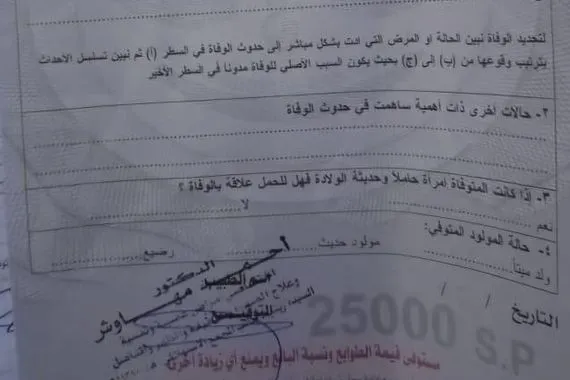 لتحديد الوفاة نبين الحالة او المرض التي ادت بشكل مباشر إلى حدوث الوفاة في السطر (أ) ثم نبين تسلسل الاحداث
بترتيب وقوعها من (ب) إلى (ج) بحيث يكون السبب الأصلي للوفاة مدوناً في السطر الأخير
٢- حالات اخرى ذات أهمية ساهمت في حدوث الوفاة
٣- إذا كانت المتوفاة امرأة حاملاً وحديثة الولادة فهل للحمل علاقة بالوفاة ؟
نعم لا
٤- حالة المولود المتوفي:
ولد ميتاً مولود حديث رضيع
التاريخ / /
الدكتور
ختم الطبيب
التوقيع
25000 S.P
مستوفى قيمة الطوابع ونسبة البائع ويمنع أي زيادة أخرى